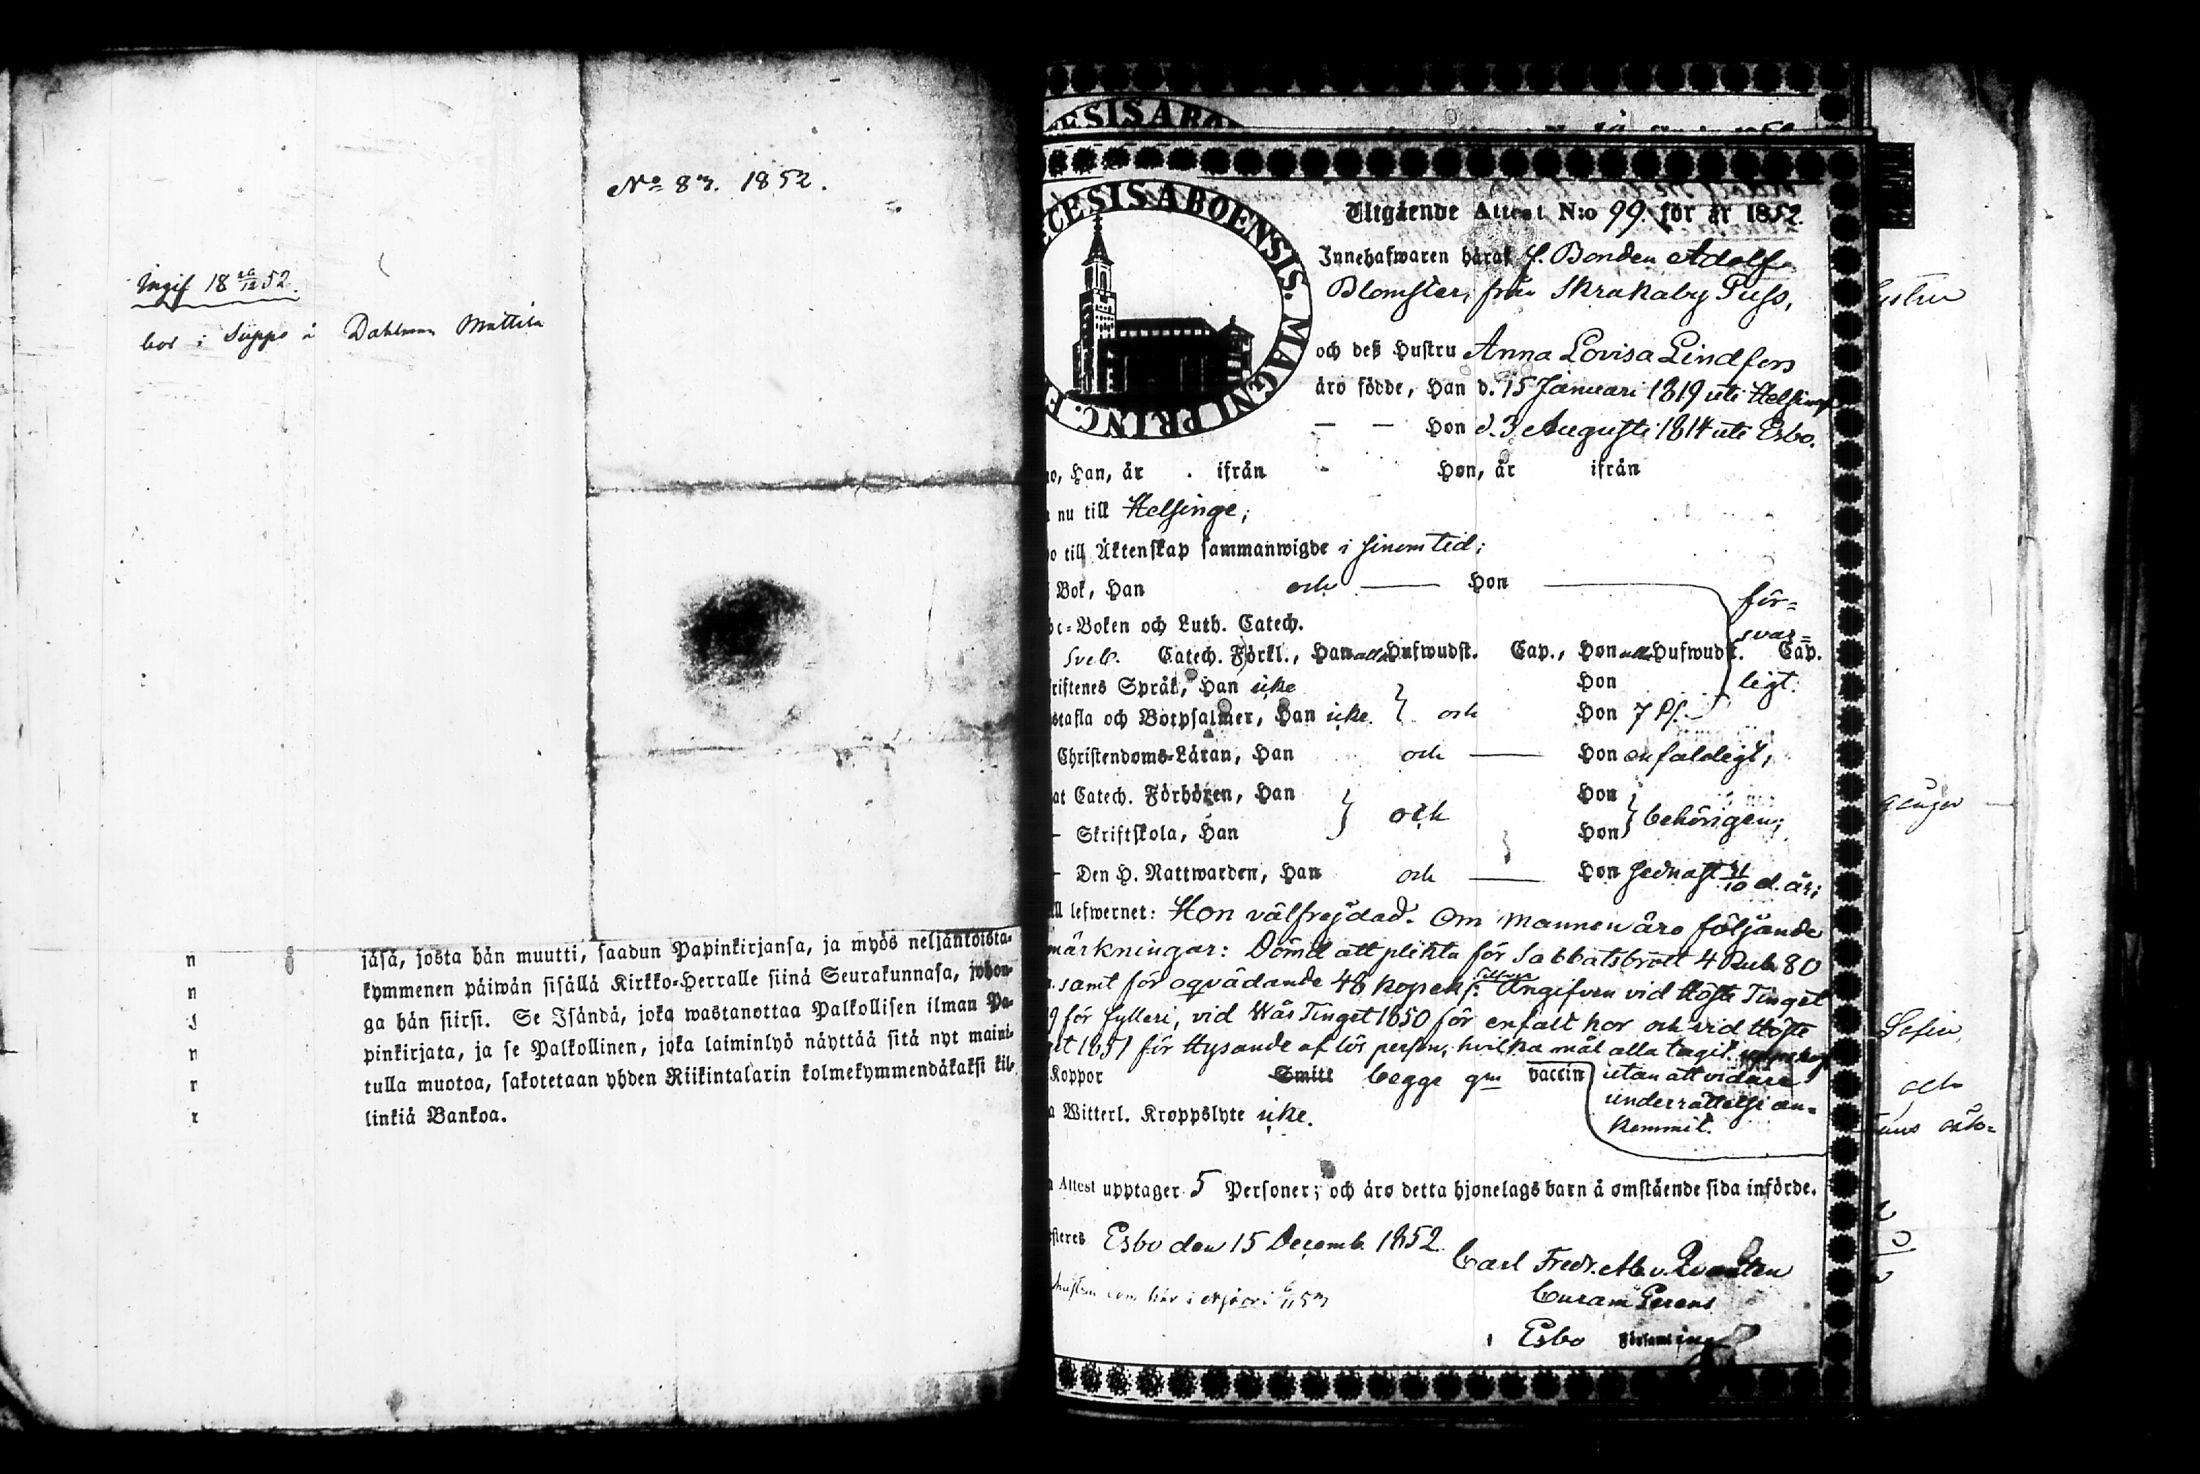 No 87. 1852.
Ingif 18 52.
bor i Sippo å Dahlman Mattila
n
n
n
r
r
jäsä, josta hän muutti, saadun Papinkirjansa, ja myös neljäntoista-
kymmenen päiwän sisällä Kirkko-Herralle siinä Seurakunnasa, johon-
ga hän siirsi. Se Isändä, joka wastanottaa Palkollisen ilman Pa-
pinkirjata, ja se Palkollinen, joka laiminlyö näyttää sitä nyt maini-
tulla muotoa, sakotetaan yhden Riikintalarin kolmekymmendäkaksi kil-
linkiä Bankoa.
ESIS ABO
CESIS ABOENSIS. MAGNI PRINC. F
Utgående Attest N:o 99. för år 1852.
Innehafwaren häraf f. Bonden Adolf
Blomster, från Skrakaby Gufs,
och deß Hustru Anna Lovisa Lindfors
äro födde, Han d. 15 Januari 1819 uti Helsinge
— — Hon d. 3 Augusti 1814 uti Esbo.
o, Han, år . ifrån - Hon, år ifrån
nu till Helsinge;
o till Äktenskap sammanwigde i sinom tid;
Bok, Han och — Hon — för=
bc-Boken och Luth. Catech. svar=
Sveb. Catech. Förkl., Han alla Hufwudst. Cap., Hon alla Hufwudst. Cap.
riftenes Språk, Han icke Hon ligt.
stafla och Botpsalmer, Han icke och Hon 7 Ps.
Christendoms-Läran, Han och — Hon enfaldigt,
at Catech. Förhören, Han och Hon behörigen;
- Skriftskola, Han Hon
- Den H. Nattwarden, Han och — Hon sednast 31/10 d. år;
ll lefwernet: Hon välfrejdad. Om mannen äro följande
märkningar: Dömd att plikta för Sabbatsbrott 4 Rub. 80
samt för oqvädande 48 kopek s. Angifven vid Höste Tinget
9 för fylleri, vid Wår Tinget 1850 för enfalt hor och vid Höste
et 1851 för Hysande af lös person, hvilka mål alla tagit
Koppor Smitt begge gm vaccin utan att vidare
underrättelse an=
kommit.
a Witterl. Kroppslyte icke.
Attest upptager 5 Personer; och äro detta hjonelags barn å omstående sida införde.
steres Esbo den 15 Decemb. 1852.
Carl Fredr. Ab. v. Qvanten
Curam Gerens
i Esbo Församling
ustru
Sofia
och